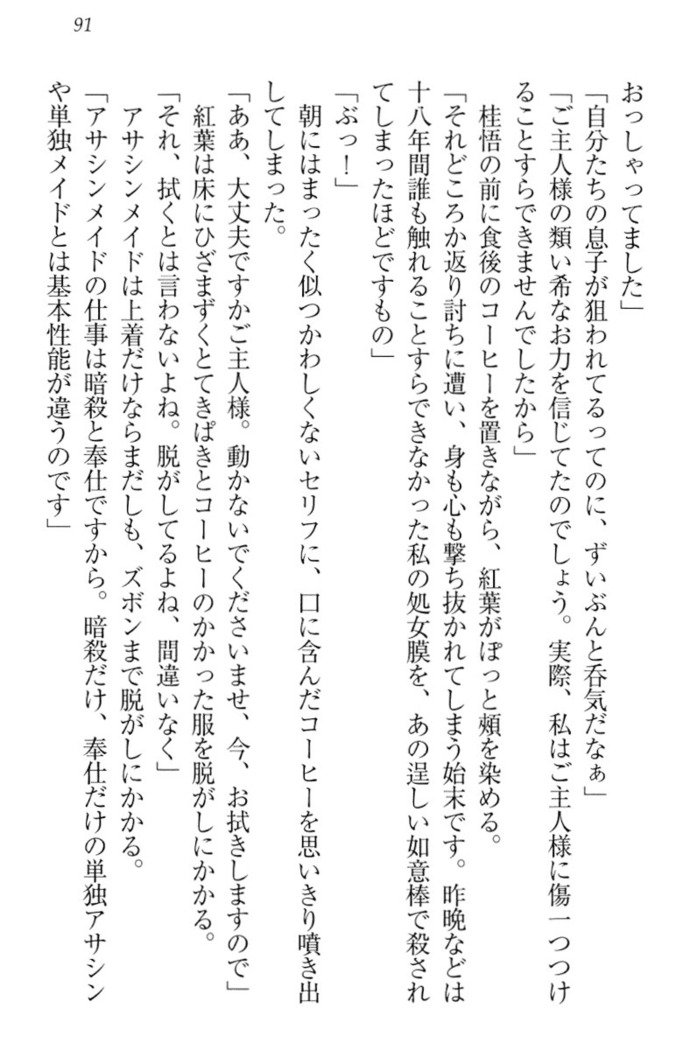 91
おっしゃってました」
「自分たちの息子が狙われてるってのに、ずいぶんと呑気だなぁ」
「ご主人様の類い希なお力を信じてたのでしょう。実際、私はご主人様に傷一つつけ
ることすらできませんでしたから」
桂悟の前に食後のコーヒーを置きながら、紅葉がぽっと頰を染める。
「それどころか返り討ちに遭い、身も心も撃ち抜かれてしまう始末です。昨晩などは
十八年間誰も触れることすらできなかった私の処女膜を、あの逞しい如意棒で殺され
てしまったほどですもの」
「ぶっ！」
朝にはまったく似つかわしくないセリフに、口に含んだコーヒーを思いきり噴き出
してしまった。
「ああ、大丈夫ですかご主人様。動かないでくださいませ、今、お拭きしますので」
紅葉は床にひざまずくとてきぱきとコーヒーのかかった服を脱がしにかかる。
「それ、拭くとは言わないよね。脱がしてるよね、間違いなく」
アサシンメイドは上着だけならまだしも、ズボンまで脱がしにかかる。
「アサシンメイドの仕事は暗殺と奉仕ですから。暗殺だけ、奉仕だけの単独アサシン
や単独メイドとは基本性能が違うのです」